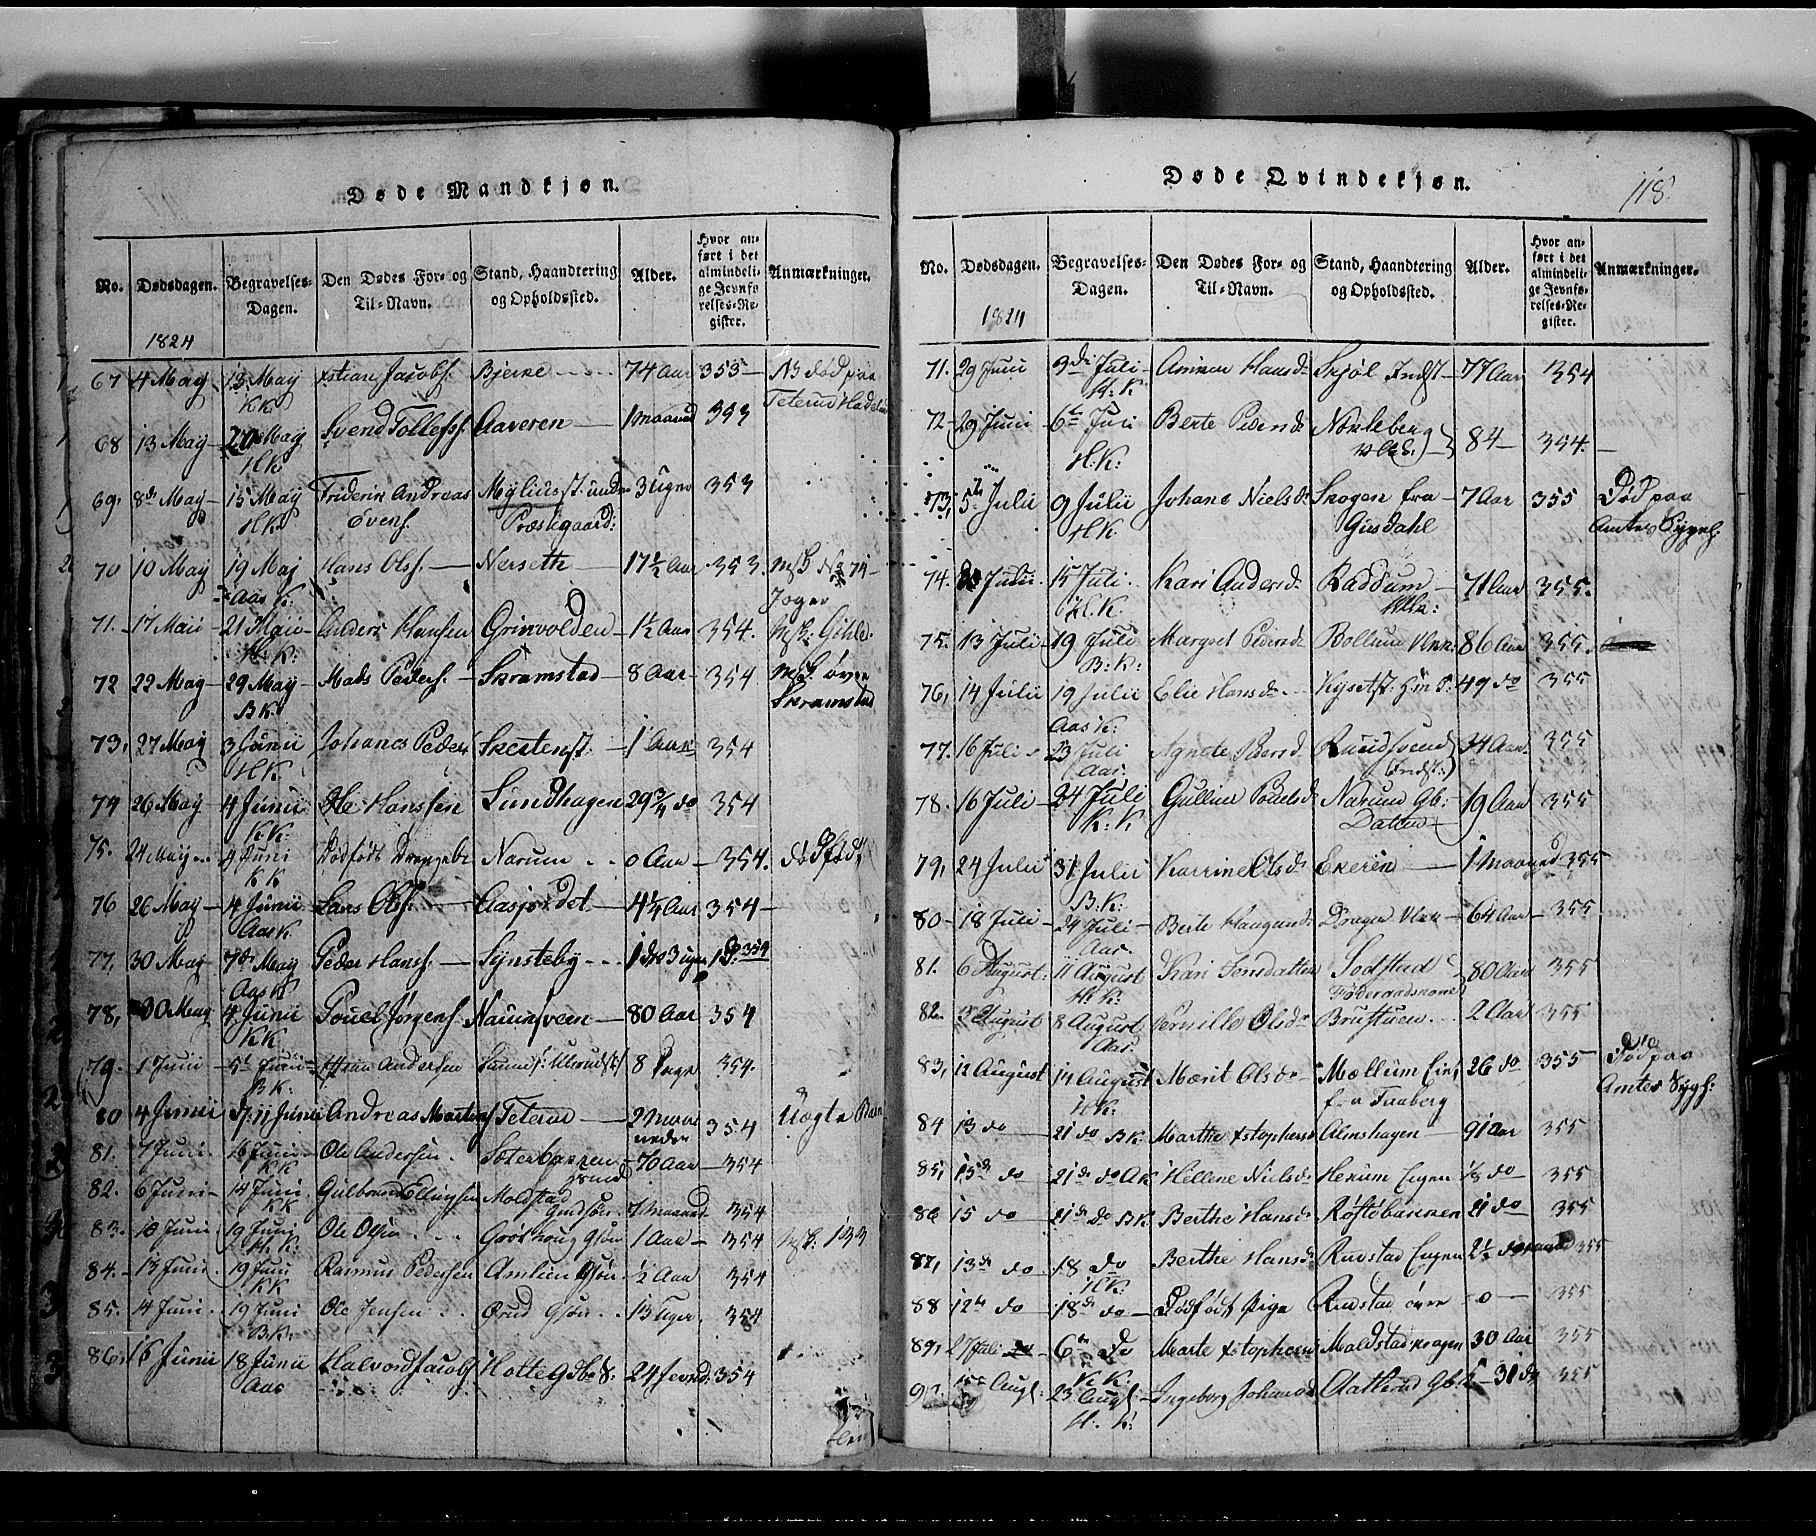 Døde Mandkjøn.
No. Dødsdagen. Begravelses-Dagen. Den Dødes For- og Til-Navn. Stand, Haandtering og Opholdssted. Alder. Hvor anført i det almindelige Jevnførelses-Register. Anmærkninger.
1824
67 4 May 13 May KK Xstian Jacobs. Bjerke 74 Aar 353 NB død paa Teterud Hadeland
68 13 May 20 May HK Svend Tollefss. Aaveren 1 maaned 353
69, 8de May 15 May HK Friderik Andreas Evens. Mylius st. under Præstegaard: 3 Uger 353
70 10 May 19 Maj Aas K: Hans Ols. Nerseth 17½ Aar 353.
71. 17 Maii 21 Maii H: K: Anders Hansen Grinvolden 1½ Aar 354.
72 22 May 29 May BK: Mads Peders. Skramstad 8 Aar 354 øvre Skramstad
73, 27 May 3 Junii HK Johanes Peders Skestenst. 1 Aar 354
74 26 May 4 Junii KK: Ole Hanssen Lundhagen 29¾ do 354
75. 24 May 4 Juni KK Dødfødt Drengebr Narum 0 Aar 354. dødfødt
76 26 May 4 Junii Aas K Lars Ols. Aasjordet 4¼ Aar 354
77, 30 May 7de May Aas K Peder Hans. Synsteby
78, 30 May 4 Junii KK Pouel Jørgens. Narumsveen 80 Aar 354
79. 1 Junii 5t Junii BK: Andersen 8 Dage 354.
80 4 Junii 11 Junii Andreas Martens Teterud 2 Maaneder 354 Uægte Barn
81. 7 Juni 16 Juni KK Ole Andersen Sæterbakken 70 Aar 354
82. 6 Juni 14 Juni KK Gulbrand Ellingsen Moldstad Gmdsøn 7 maaned 354
83. 10 Juni 19 Juni H. K: Ole Olsen Grøshoug Gsøn 1 Aar 354 133
84. 13 Juni 19 Juni KK Rasmus Pedersen Amlien Gsøn ½ Aar 354
85. 14 Juni 19 Juni BK. Ole Jensen Grud Gsøn 13 Uger 354
86, 16 Junii 18 Junii Aas Halvord Jacobs. Hotte 24 354
Døde Qvindekjøn.
118.
No. Dødsdagen. Begravelses-Dagen. Den Dødes For- og Til-Navn. Stand, Haandtering og Opholdssted. Alder. Hvor anført i det almindelige Jevnførelses-Register. Anmærkninger.
1824
71. 29 Juni 3die Juli H. K Anne Hansd. Skjøl Indst 77 Aar 354
72 29 Juni 6te Juli H. K: Berte Pedersd Norleberg 84 354.
73, 5te Julii 9 Julii HK. Johane Nielsd. Skogen fra Gusdahl 7 Aar 355 Død paa Amtes Sygeh.
74. Julii 15 Juli. H. K. Kari Andersd. Raddum 71 Aar 355.
75. 13 Juli 19 Juli B: K: Margret Pedersd. Bollum 86 Aar 355.
76, 14 Julii 19 Julii Aas K: Elie Hansd. Kyset st: 49 do 355
77. 16 Juli 23 Juli Aas. Agnete Peersd. Ruudsveend (Indst:) 34 Aar 355
78. 16 Juli 24 Juli K: K Gulline Poulsd Narum Gb: Datter 19 Aar 355
79, 24 Julii 31 Julii B: K: Karrine Olsd. Ekeren 1 Maaned 355
80 18 Juli 24 Juli Aas. Berte Haagensd. Dragen 64 Aar 355
81. 6 August 11 August H. K: Kari Jensdatter Sodstad Føderaadskone 80 Aar 355
82. 3 August 8 August Aas. Pernille Olsd. Brustuen 2 Aar 355
83, 12 August 14 August HK: Mærit Olsd. Mællum Eie fra Faaberg 26 do 355 Død paa Amtes Sygh:
84 13 do 21 do BK: Marthe Xstophersd Almshagen 91 Aar 355
85, 15de do 21de do AK Hellene Nielsd. Herum Eigen 1/8 do 355
86 15 do 21de do BK. Berthe Hansd. Røstøbakken 21 do 355
87, 13de do 18 do HK: Berthe Hansd. Rudstad Eigen 2½ 355
88 12te do 18de do Dødfødt Pige Rudstad øvre 0 355
89, 27 Juli 6te do K K: Marte Xstophersd Moldstadkragen 30 Aar 355
90. 15 Augt: 23 Augt H: K: Ingeborg Johannesd Aatterud Gb: 355